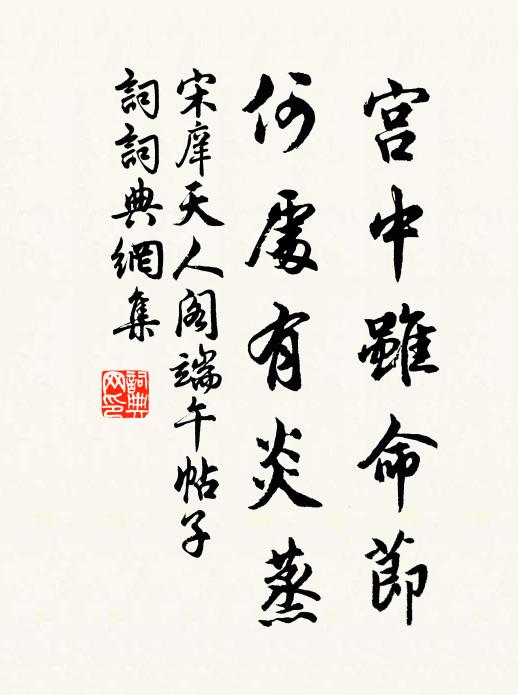 宫中雖命節
何處有炎蒸
宋庠天人閣端午帖子
詞詞典網集
詞典网印